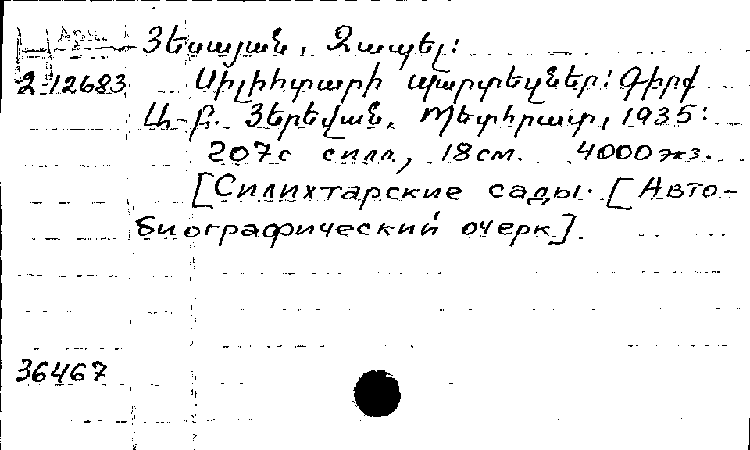 Арм. Յեսայան, Զապել:
2-12683 Սիլիհտարի պարտեզները: Գիրք
Ա-ը. Յերեվան, Պետհրատ, 1935:
207с с илл, 18см. 4000 экз.
[Силихтарские сады. [Авто-
биографический очерк].
36467